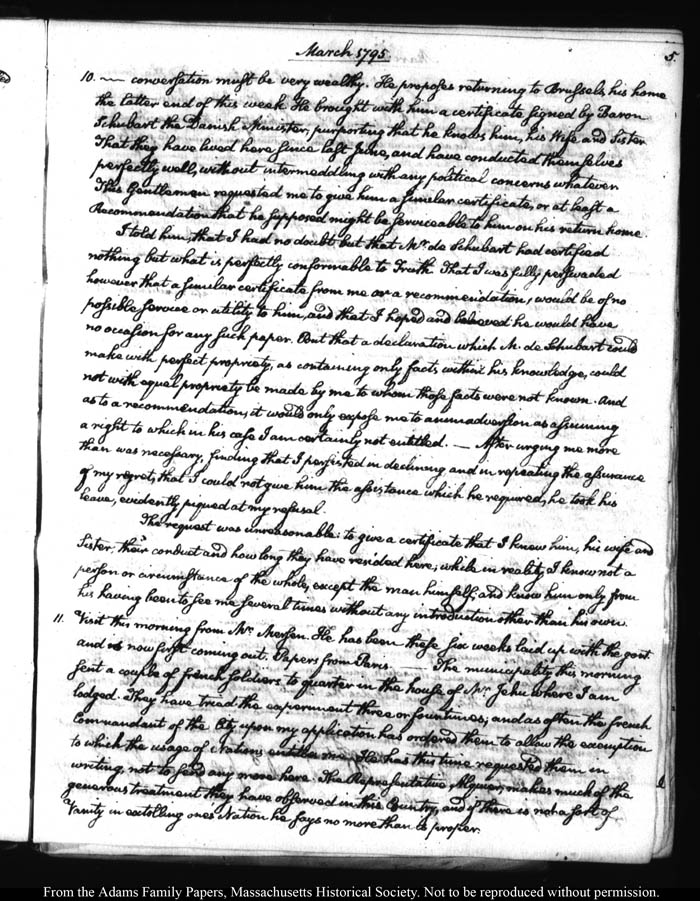 March 1795.
5.
10. — conversation must be very wealthy. He proposes returning to Brussels his home
the latter end of this week. He brought with him a certificate signed by Baron
Schubart the Danish Minister, purporting that he knows him, his Wife and Sister
That they have lived here since last June, and have conducted themselves
perfectly well, without intermeddling with any political concerns whatever
This Gentleman requested me to give him a similar certificate, or at least a
Recommendation that he supposed might be serviceable to him on his return home.
I told him, that I had no doubt but that Mr. de Schubart had certified
nothing but what is perfectly conformable to Truth. That I was fully perswaded
however that a similar certificate from me or a recommendation, would be of no
possible service or utility to him, and that I hoped and believed he would have
no occasion for any such paper. But that a declaration which M. de Schubart could
make with perfect propriety, as containing only facts within his knowledge, could
not with equal propriety be made by me to whom those facts were not known. And
as to a recommendation, it would only expose me to animadversion as assuming
a right to which in his case I am certainly not entitled. — After urging me more
than was necessary, finding that I persisted in declining and in repeating the assurance
of my regret, that I could not give him the assistance which he required, he took his
leave, evidently piqued at my refusal.
The request was unreasonable: to give a certificate that I knew him, his wife and
Sister, their conduct and how long they have resided here, while in reality I know not a
person or circumstance of the whole, except the man himself, and know him only from
his having been to see me several times without any introduction other than his own.
11. Visit this morning from Mr. He has been these six weeks laid up with the gout
and is now first coming out. Papers from Paris. — The municipality this morning
sent a couple of french soldiers to quarter in the house of Mr. Jehu where I am
lodged. They have tried the experiment three or four times; and as often the french
Commandant of the City upon my application has ordered them to allow the exemption
to which the usage of Nations entitles me. He has this time requested them in
writing, not to send any more here. The Representative Alquier, makes much of the
generous treatment they have observed in this Country, and if there is not a sort of
Vanity in extolling ones Nation he says no more than is proper.
From the Adams Family Papers, Massachusetts Historical Society. Not to be reproduced without permission.